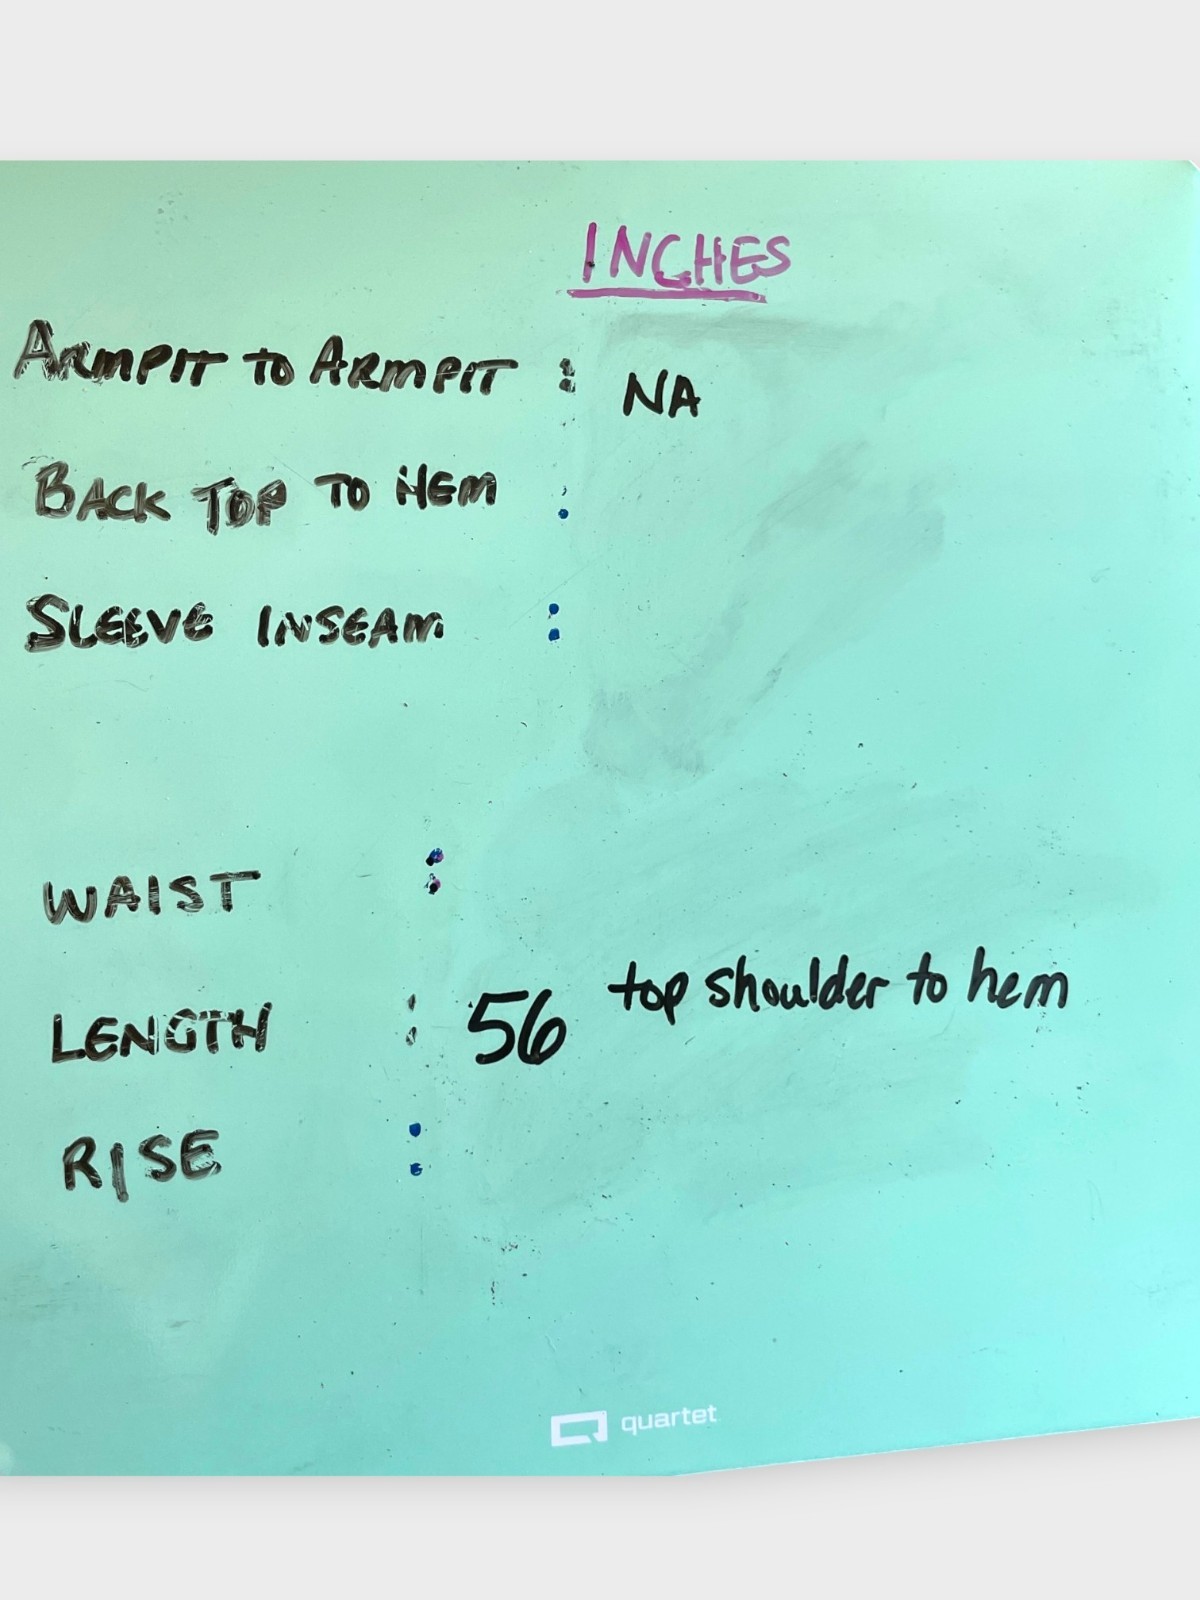 INCHES
ARMPIT TO ARMPIT : NA
BACK TOP TO HEM :
SLEEVE INSEAM :
WAIST :
LENGTH : 56 top shoulder to hem
RISE :
quartet